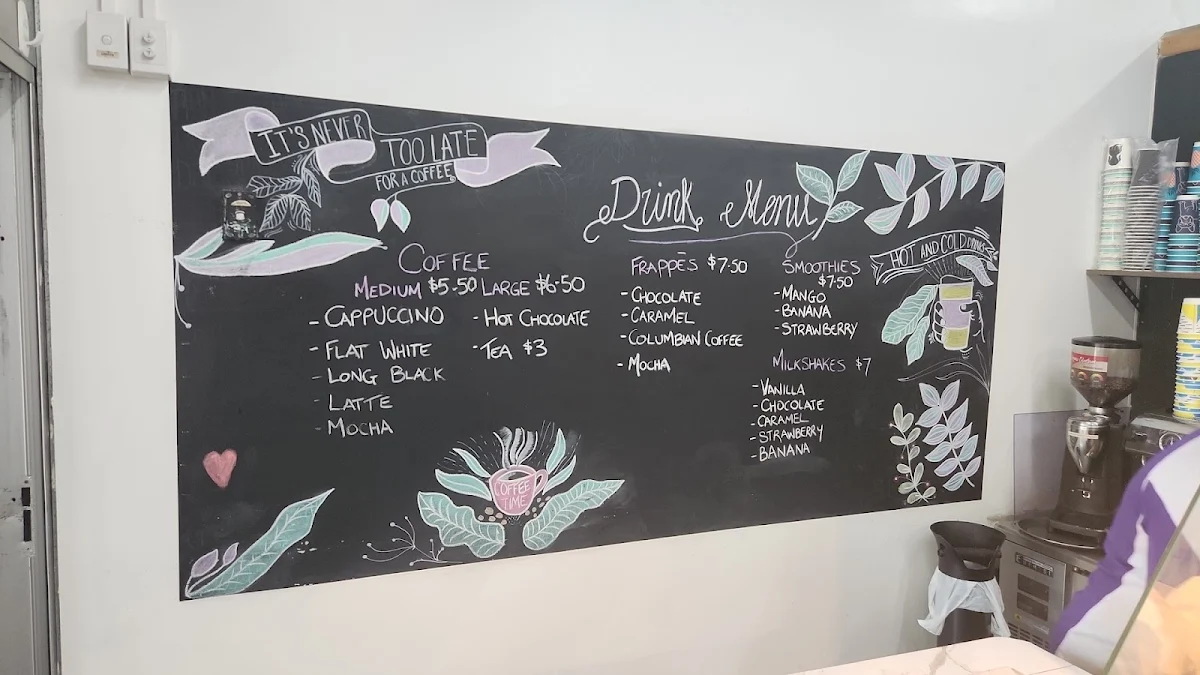 IT'S NEVER
TOO LATE
FOR A COFFEE
Drink Menu
HOT AND COLD DRINKS
COFFEE
MEDIUM $5.50 LARGE $6.50
- CAPPUCCINO
- FLAT WHITE
- LONG BLACK
- LATTE
- MOCHA
- HOT CHOCOLATE
- TEA $3
FRAPPĒS $7.50
- CHOCOLATE
- CARAMEL
- COLUMBIAN COFFEE
- MOCHA
SMOOTHIES
$7.50
- MANGO
- BANANA
- STRAWBERRY
MILKSHAKES $7
- VANILLA
- CHOCOLATE
- CARAMEL
- STRAWBERRY
- BANANA
COFFEE
TIME